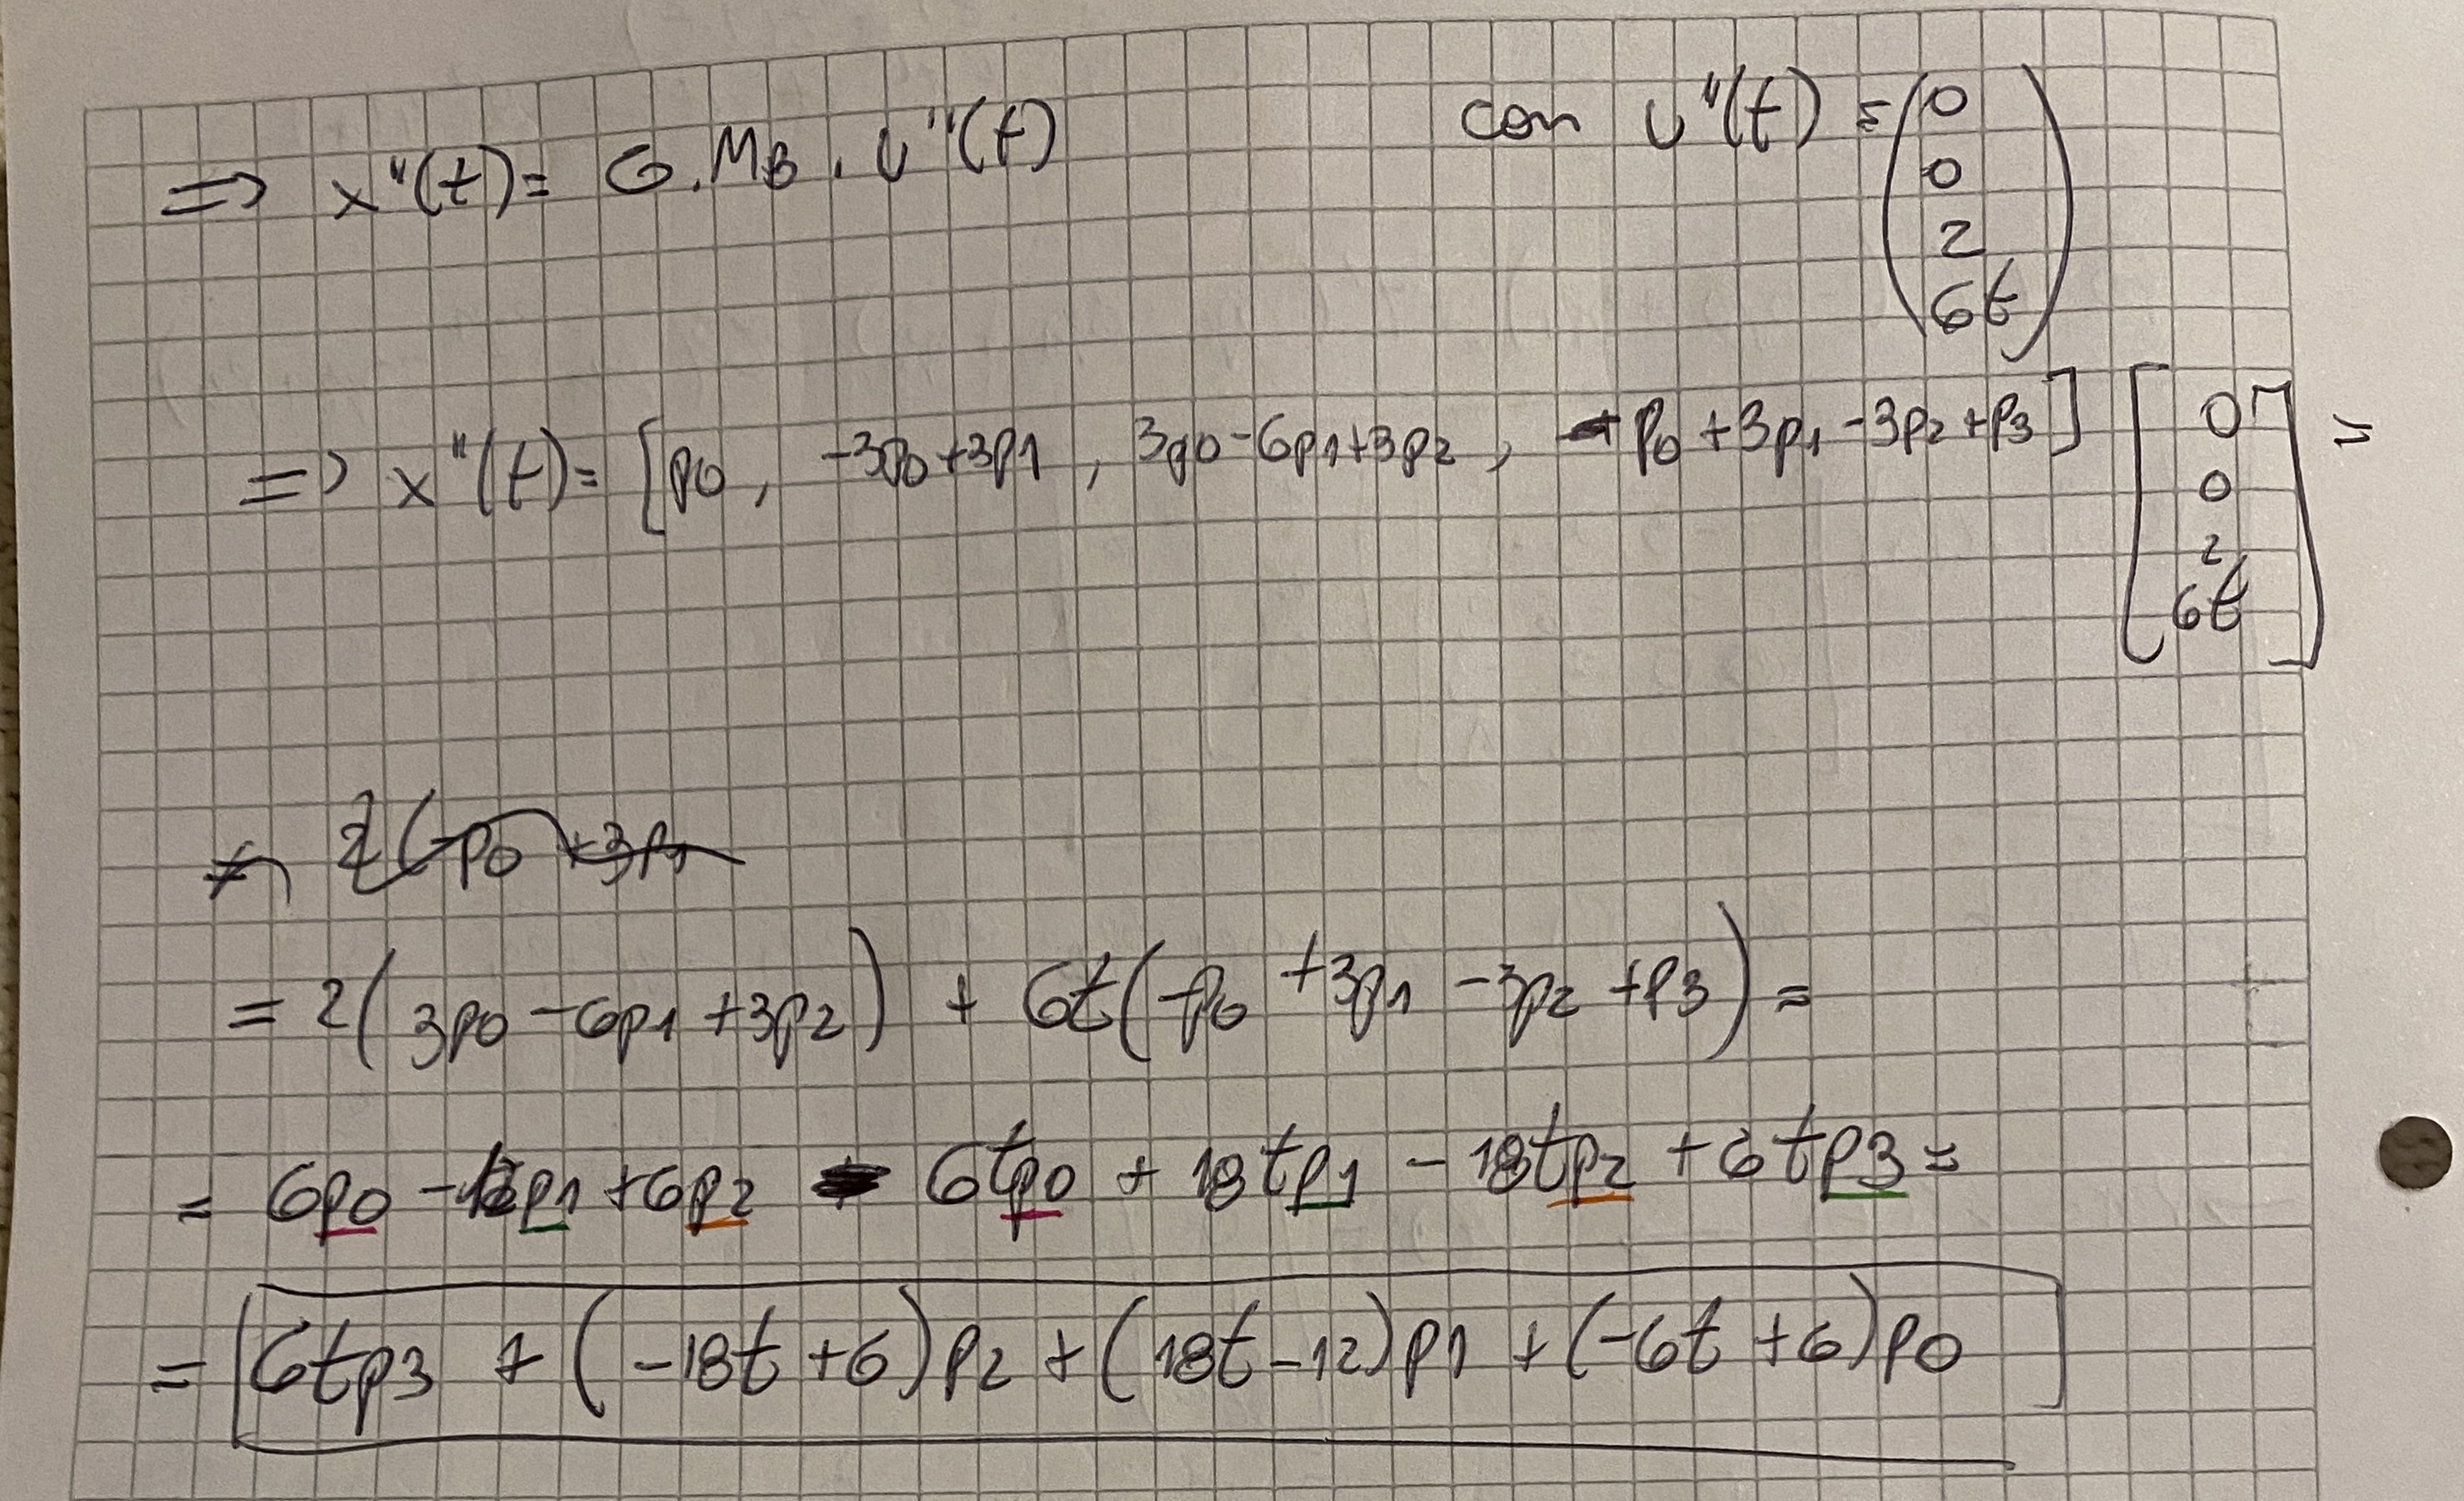 => x"(t) = G . MB . U"(t) con U"(t) = (0 0 2 6t)
=> x"(t) = [p0, -3p0+3p1, 3p0-6p1+3p2, -p0+3p1-3p2+p3] [0 0 2 6t] =
2(-p0+3p1
= 2(3p0-6p1+3p2) + 6t(-p0+3p1-3p2+p3) =
= 6p0 -12p1 +6p2 - 6tp0 + 18tp1 - 18tp2 + 6tp3 =
= 6tp3 + (-18t+6)p2 + (18t-12)p1 + (-6t+6)p0